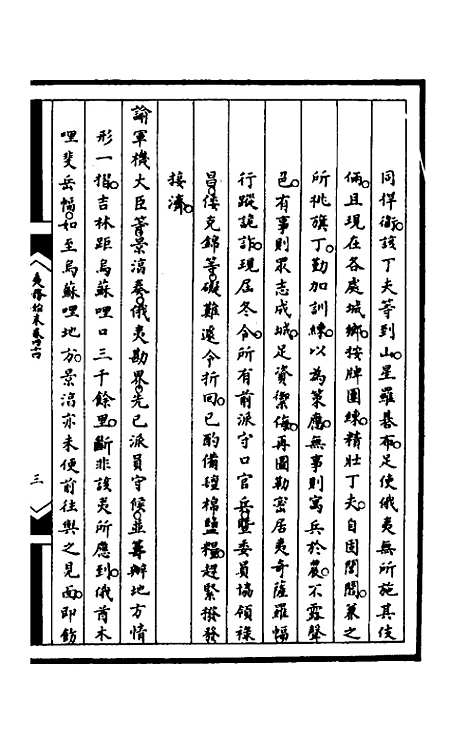 同悍衛。該丁夫等到山。星羅碁布。足使俄夷無所施其伎
倆。且現在各處城鄉。按牌團練。精壯丁夫。自固閭閻。兼之
所挑旗丁。勤加訓練。以為策應。無事則寓兵於農。不露聲
色。有事則眾志成城。足資禦侮。再圖勒密居夷奇薩羅幅
行蹤詭詐。現屆冬令。所有前派守口官兵。暨委員協領祿
昌。倭克錦等。礙難遽令折回。已酌備氊棉鹽糧。趕緊撥發
接濟。
諭軍機大臣等。景淳奏。俄夷勘界。先已派員守候。並籌辦地方情
形一摺。吉林距烏蘇哩口三千餘里。斷非該夷所應到。俄酋木
哩斐岳幅。如至烏蘇哩地方。景淳亦未便前往與之見面。即飭
夷務始末卷四十四
三